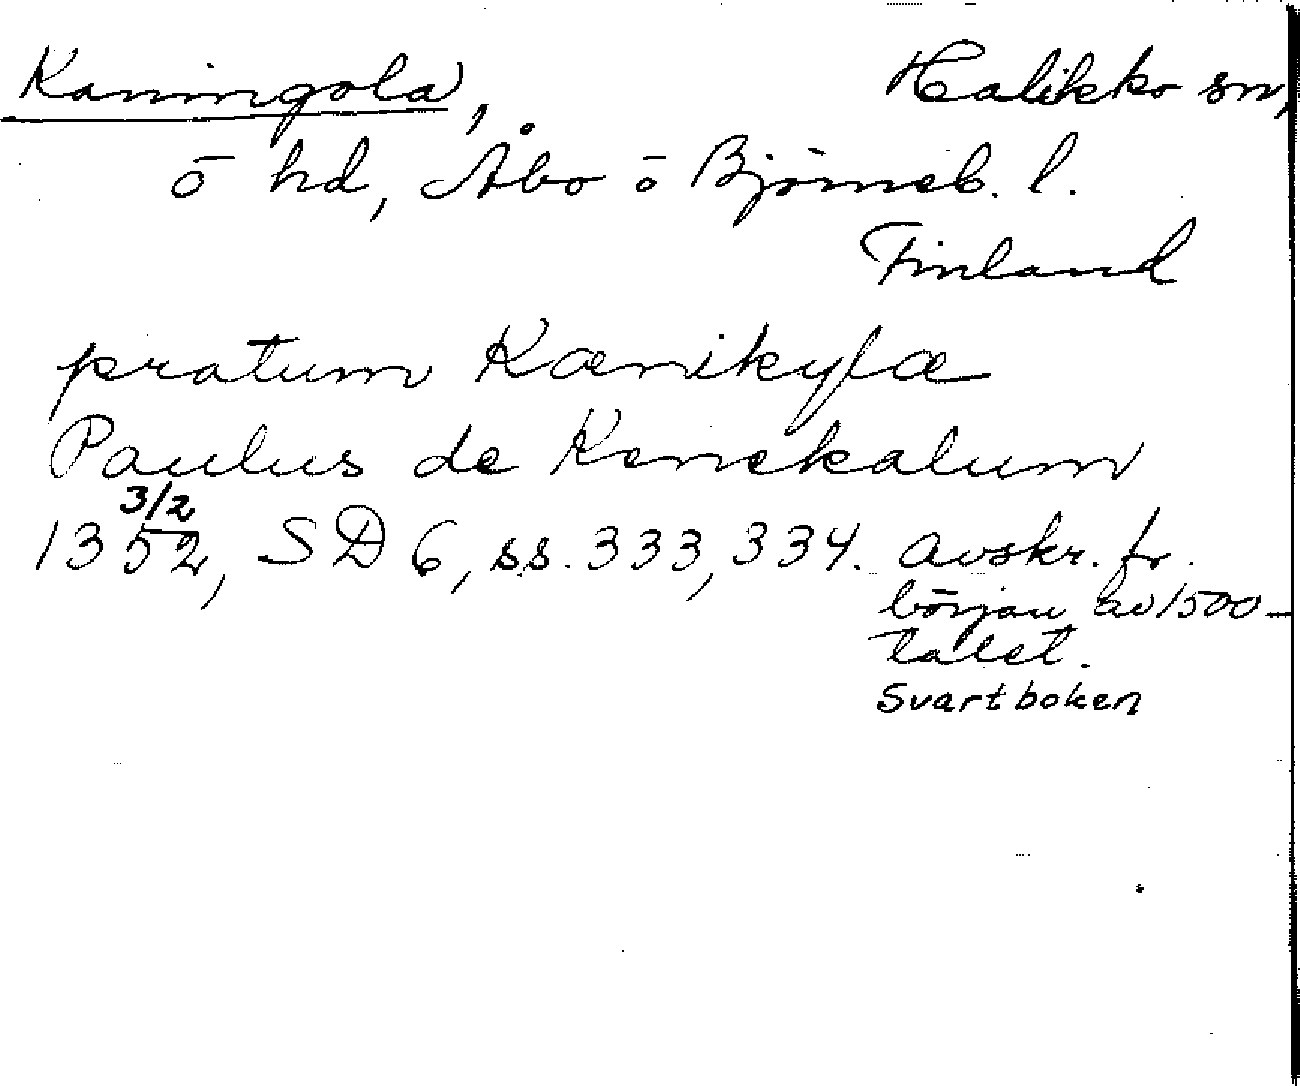 Kaningola, Halikko sn,
ō hd, Åbo ō Björneb. l.
Finland
pratum Kænikylæ
Paulus de Kenekalum
3/2
1352, SD 6, ss. 333, 334. avskr. fr.
början av 1500-
talet.
Svartboken